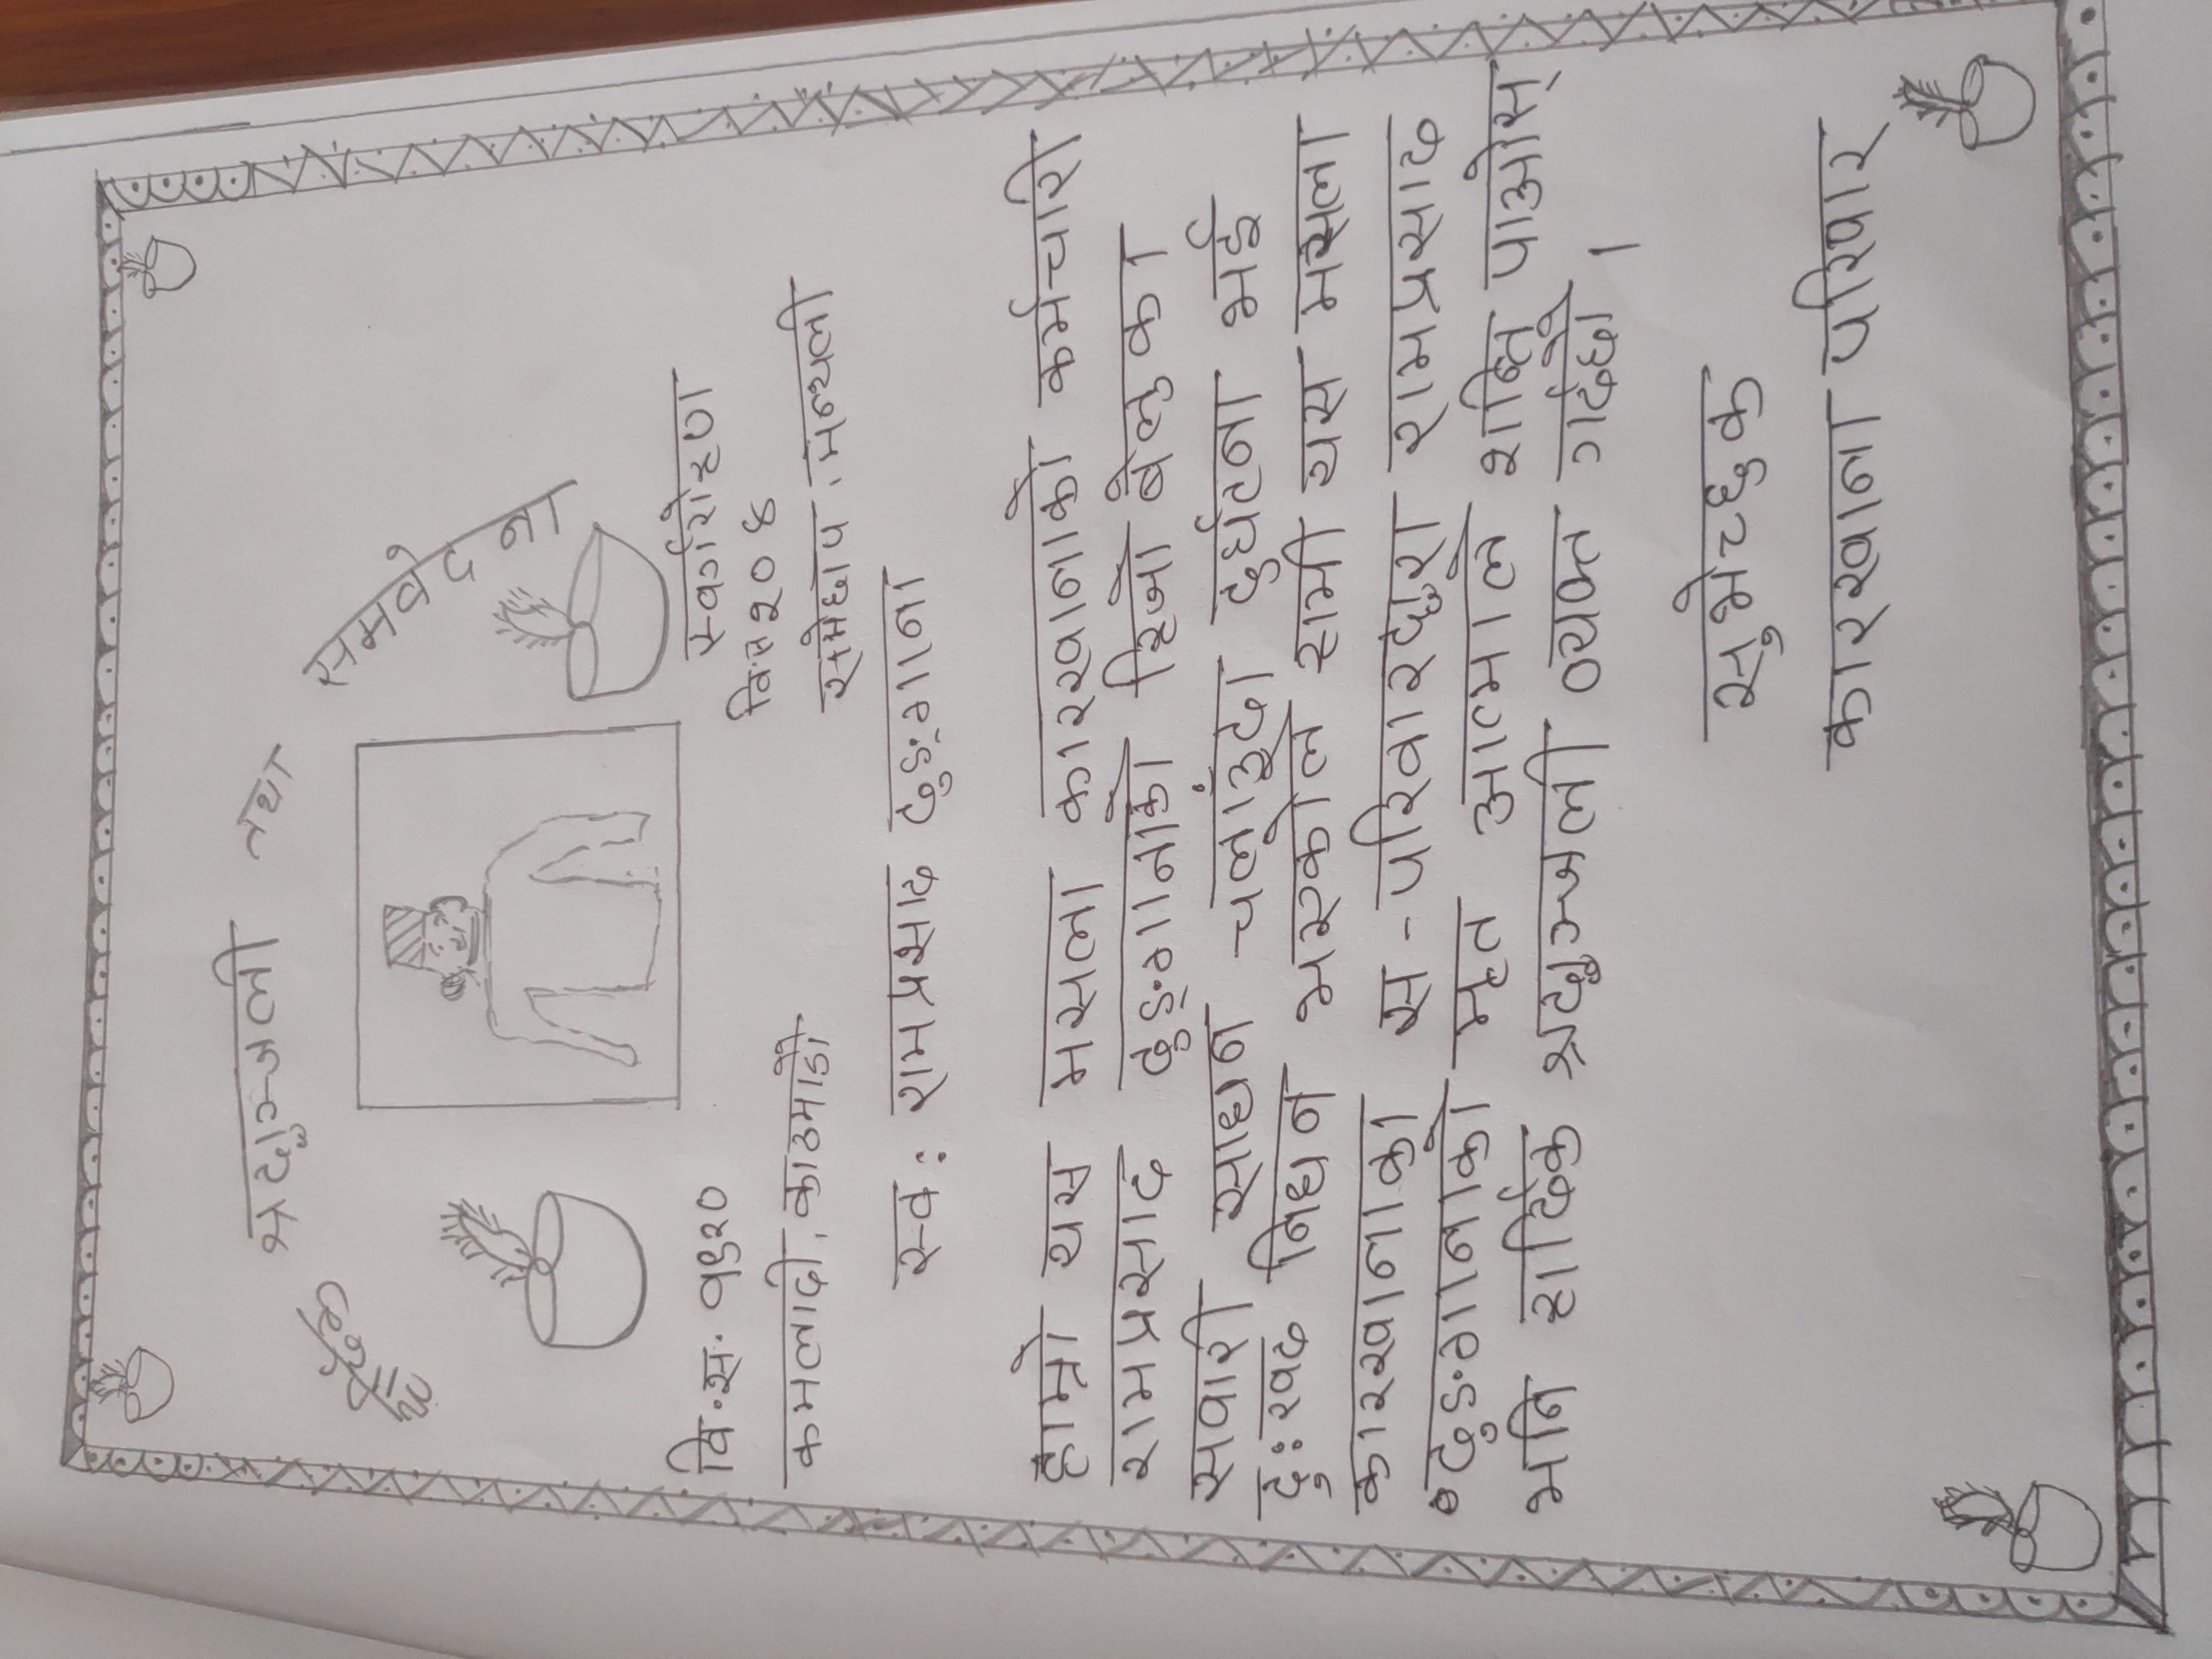 हार्दिक श्रद्धाञ्जली तथा समवेदना
वि.स. १९२०
कमलादी, काठमाडौ
स्वर्गरोहण
वि.स २०४
रामेछाप, मन्थली
स्व: रामप्रसाद ढुङ्गाना
हाम्रो यस मसला कारखानाको कर्मचारी
रामप्रसाद ढुङ्गानाको हिजो बेलुका
सवारी साधन चलाउँदा दुर्घटना भई
दु:खद निधन भएकोले हामी यस मसला
कारखानाका स-परिवारद्धारा रामप्रसाद
ढुङगानाको मृत आत्माले शन्ति पाओस्
भनि हार्दिक श्रद्धाञ्जली व्यक्त गर्दछौ ।
सुभेच्छुक
कारखाना परिवार